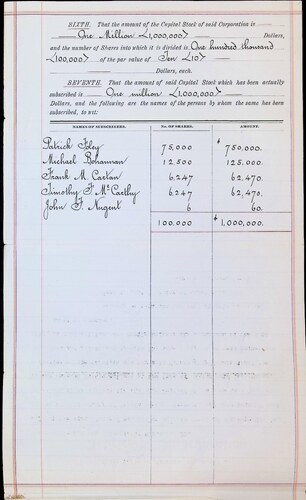 SIXTH. That the amount of the Capital Stock of said Corporation is
One Million (1,000,000) Dollars,
and the number of Shares into which it is divided is One hundred thousand
(100,000) of the par value of Ten (10)
Dollars, each.
SEVENTH. That the amount of said Capital Stock which has been actually
subscribed is One million (1,000,000)
Dollars, and the following are the names of the persons by whom the same has been
subscribed, to wit:
NAMES OF SUBSCRIBERS. No. OF SHARES. AMOUNT.
Patrick Foley 75,000 $ 750,000.
Michael Bohannan 12,500 125,000.
Frank M. Cartan 6,247 62,470.
Timothy F. McCarthy 6,247 62,470.
John F. Nugent 6 60.
100,000 $ 1,000,000.